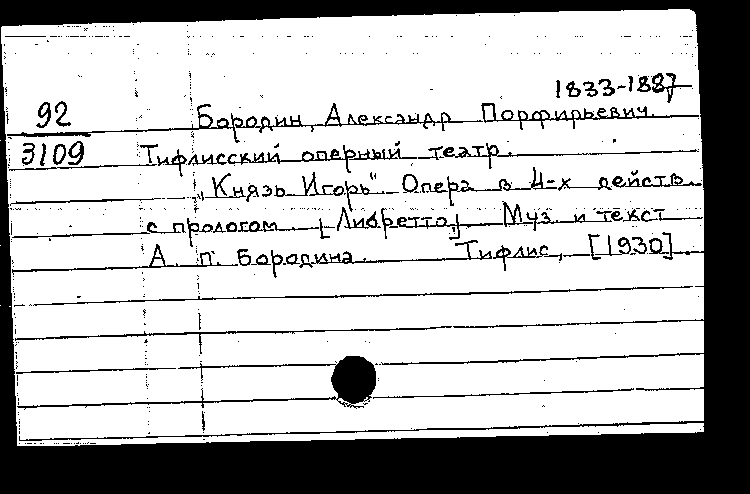 1833-1887
92 Бородин, Александр Порфирьевич.
3109 Тифлисский оперный театр.
„Князь Игорь". Опера в 4-х действ.
с прологом. [Либретто]. Муз. и текст
А. П. Бородина. Тифлис, [1930].